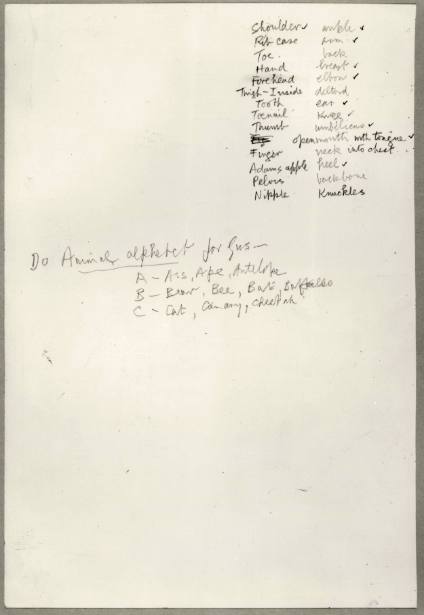 Shoulder✓ ankle ✓
Rib case arm ✓
Toe back
Hand breast ✓
Forehead elbow ✓
Thigh-Inside deltoid
Tooth ear ✓
Toenail Knee ✓
Thumb umbilicus ✓
open mouth with tongue ✓
Finger neck into chest
Adams apple heel ✓
Pelvis backbone
Nipple Knuckles
Do Animal alphabet for Gus—
A - Ass, Ape, Antelope
B - Bear, Bee, Bat, Buffalo
C - Cat, Canary, Cheetah